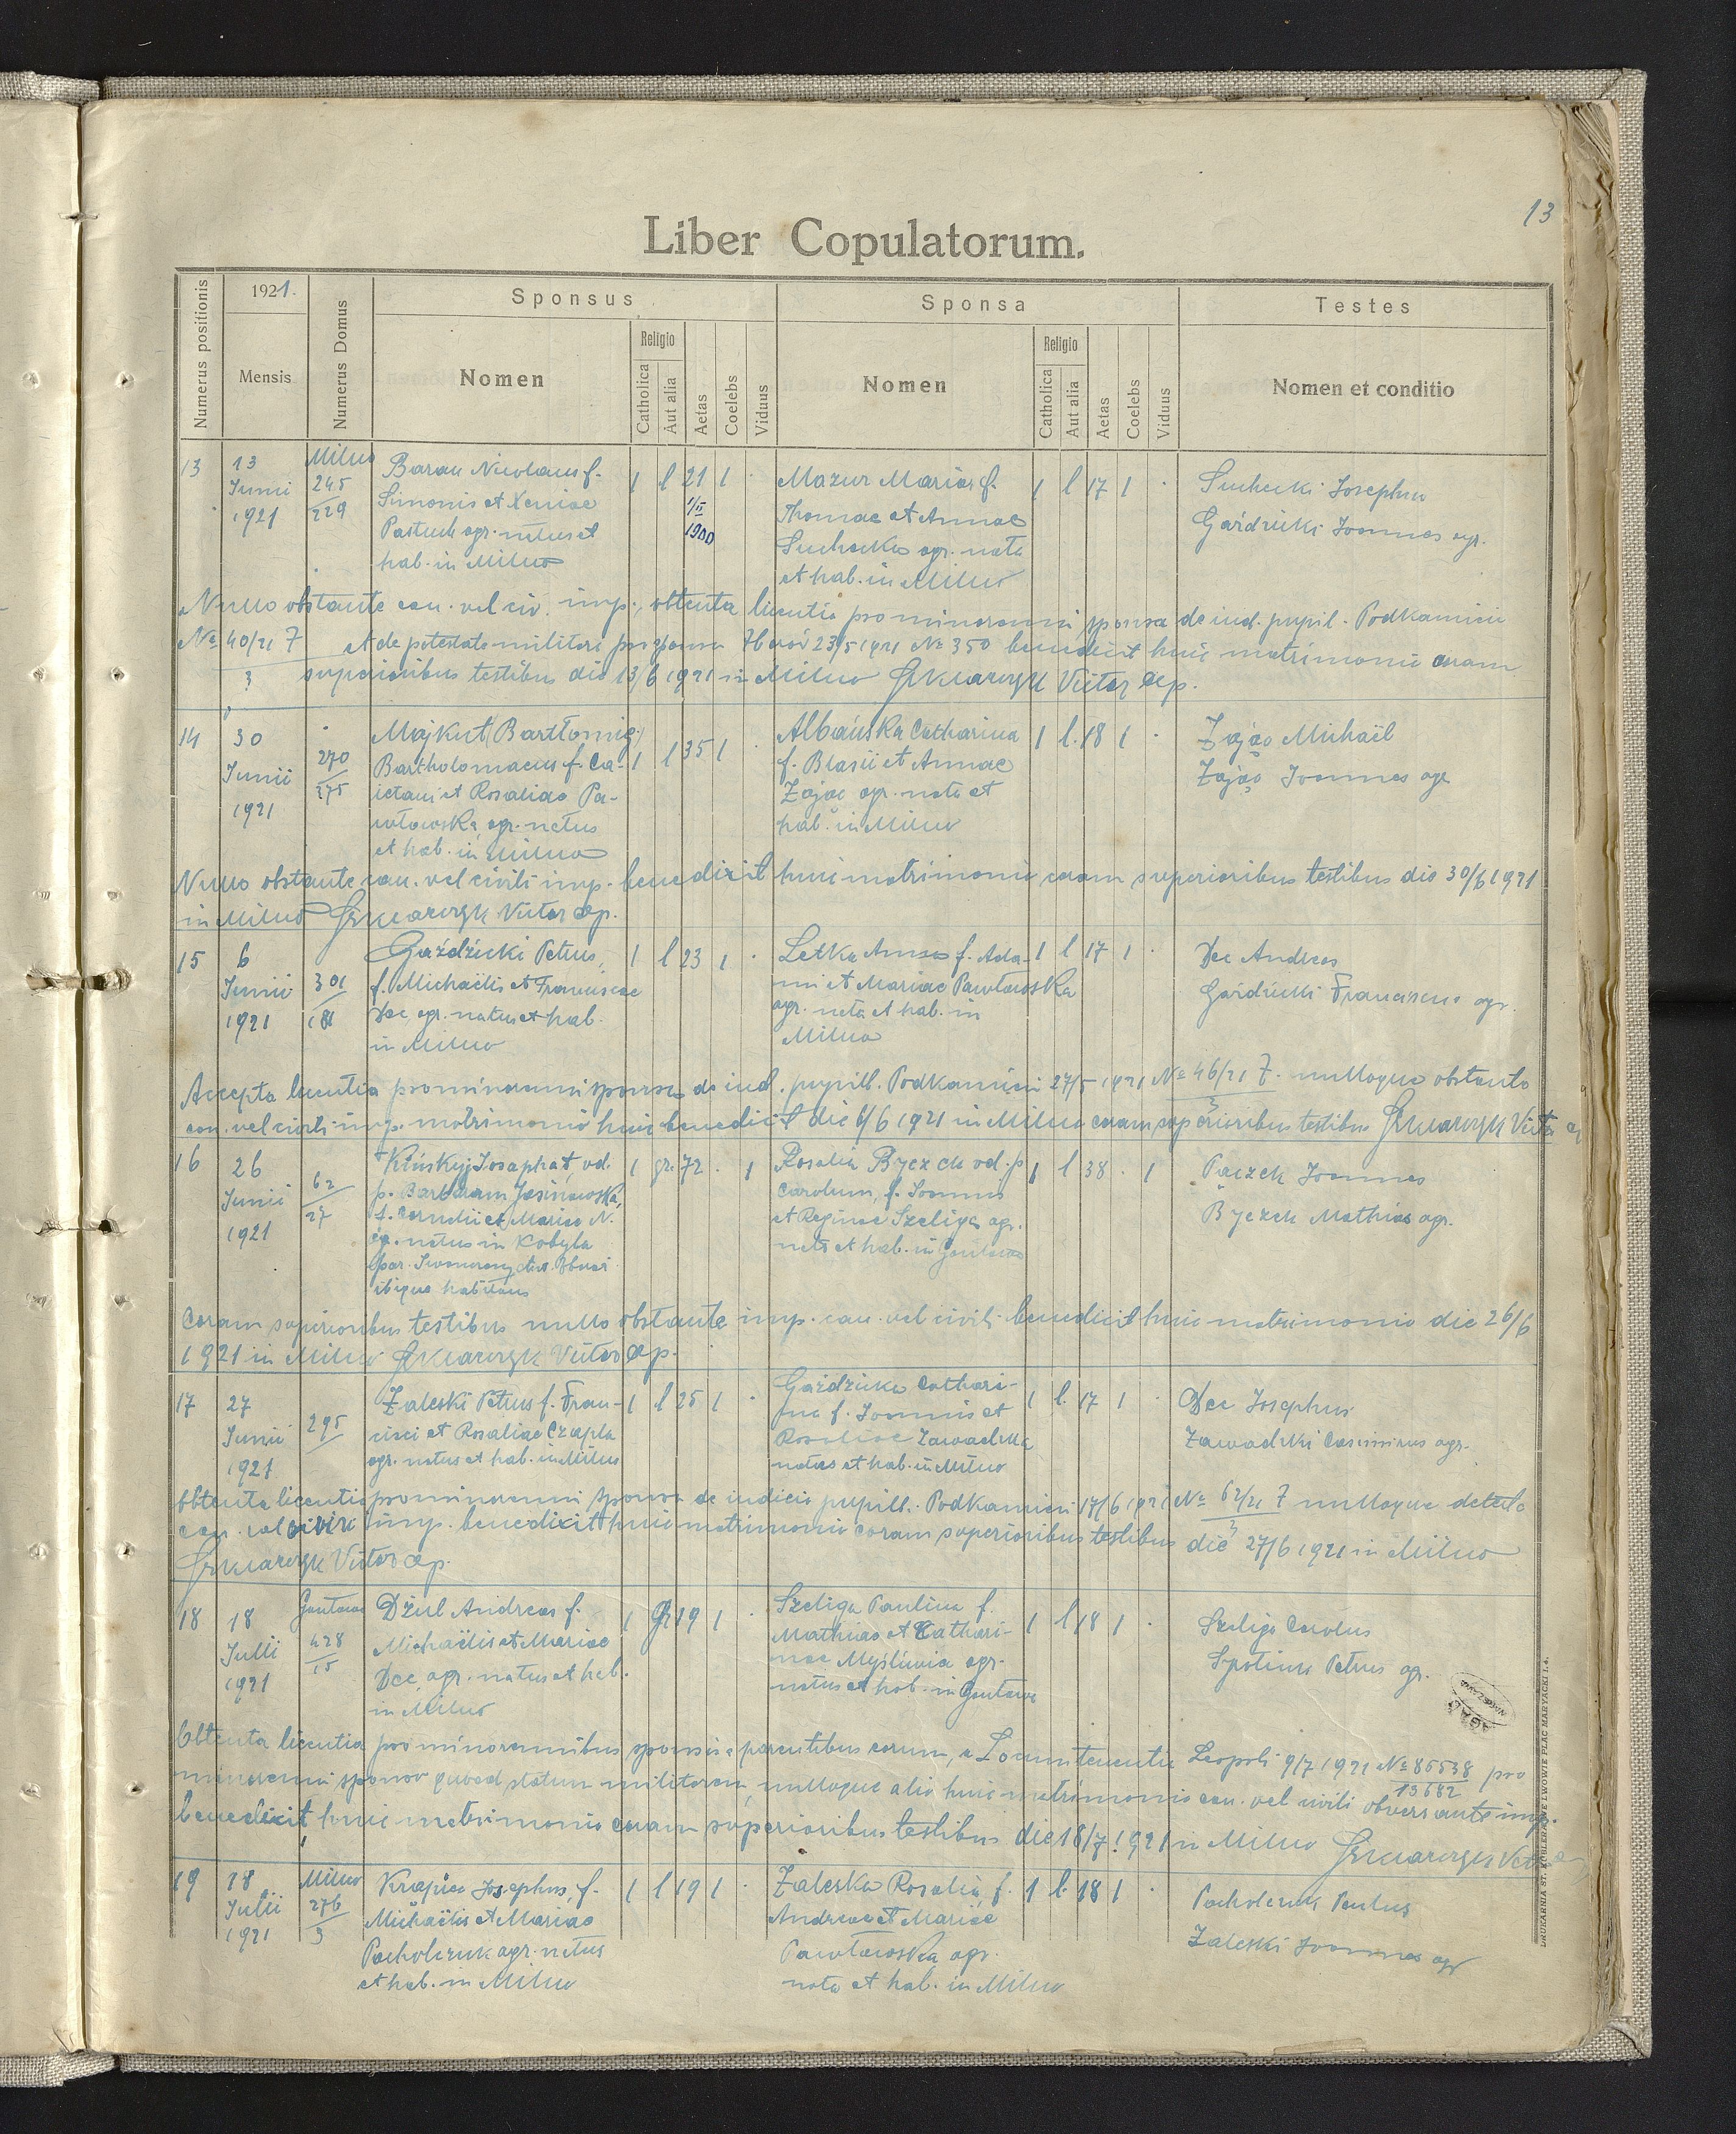 13
Liber Copulatorum.
Numerus positionis
1921.
Mensis
Numerus Domus
Sponsus
Nomen
Religio
Catholica
Aut alia
Aetas
Coelebs
Viduus
Sponsa
Nomen
Religio
Catholica
Aut alia
Aetas
Coelebs
Viduus
Testes
Nomen et conditio
13
13
Junii
1921
Milno
245
229
Baran Nicolaus f.
Simonis et Xeniae
Pastuch agr. natus et
hab. in Milno
1 l 21 1 .
1/II
1900
Mazur Maria f.
Thomae et Annae
Suchecka agr. nata
et hab. in Milno
1 l 17 1 .
Suchecki Josephus
Gaździcki Joannes agr.
Nullo obstante can. vel civ. imp., obtenta licentia pro minorenni sponsa de iud. pupil. Podkamień
No 40/21 7/3 et de potestate militari pro sponso 23/5 1921 No 350 benedixit huic matrimonio coram
superioribus testibus die 13/6 1921 in Milno Victor cap.
14
30
Junii
1921
270
275
Majkut (Bartłomiej)
Bartholomaeus f. Ca-
ietani et Rosaliae Pa-
włowska, agr. natus
et hab. in Milno
1 l 35 1 .
Albańska Catharina
f. Blasii et Annae
Zając agr. nata et
hab. in Milno
1 l. 18 1 .
Zając Michaël
Zając Joannes agr
Nullo obstante can. vel civili imp. benedixit huic matrimonio coram superioribus testibus die 30/6 1921
in Milno Victor cap.
15
6
Junii
1921
301
181
Gaździcki Petrus,
f. Michaëlis et Franciscae
Dec agr. natus et hab.
in Milno
1 l 23 1 .
Letka Anna f. Ada-
mi et Mariae Pawłowska
agr. nata et hab. in
Milno
1 l 17 1 .
Dec Andreas
Gaździcki Franciscus agr.
Accepta licentia pro minorenni sponsa de iud. pupill. Podkamień 27/5 1921 No 46/21 7/3 nulloque obstante
can. vel civili imp. matrimonio huic benedixit die 6/6 1921 in Milno coram superioribus testibus Victor
16
26
Junii
1921
62
27
Kińskyj Josaphat, vd.
p. Barbaram Jasinowska,
f. Cornelii et Mariae N.
agr. natus in Kobyla
ibique habitans
1 gr. 72 . 1
Rosalia Byczek vd. p.
Carolum, f. Joannis
et Reginae Szeliga agr.
nata et hab. in Gontowa
1 l 38 . 1
Pączek Joannes
Byczek Mathias agr.
Coram superioribus testibus nullo obstante imp. can. vel civili benedixit huic matrimonio die 26/6
1921 in Milno Victor cap.
17
27
Junii
1921
295
Zaleski Petrus f. Fran-
cisci et Rosaliae Czapla
agr. natus et hab. in Milno
1 l 25 1 .
Gaździcka Cathari-
na f. Joannis et
Rosaliae Zawadzka
natus et hab. in Milno
1 l. 17 1 .
Dec Josephus
Zawadzki Casimirus agr.
Obtenta licentia pro minorenni sponsa de iudicio pupill. Podkamień 17/6 1921 No 62/21 7/3 nulloque detecto
can. vel civili imp. benedixit huic matrimonio coram superioribus testibus die 27/6 1921 in Milno
Victor cap.
18
18
Julii
1921
Gontowa
428
15
Dziul Andreas f.
Michaëlis et Mariae
Dec, agr. natus et hab.
in Milno
1 gr 19 1 .
Szeliga Paulina f.
Mathiae et Cathari-
nae Myśliwia agr.
natus et hab. in Gontowa
1 l 18 1 .
Szeliga Carolus
Petrus agr.
Obtenta licentia pro minorennibus sponsis a parentibus eorum, a Locumtenentia Leopoli 9/7 1921 No 85538/13682 pro
minorenni sponso quoad statum militarem, nulloque alio huic matrimonio can. vel civili obversante imp.
benedixit huic matrimonio coram superioribus testibus die 18/7 1921 in Milno
19
18
Julii
1921
Milno
276
3
Krąpiec Josephus, f.
Michaëlis et Mariae
Pacholczuk agr. natus
et hab. in Milno
1 l 19 1 .
Zaleska Rosalia f.
Andreae et Mariae
Pawłowska agr.
nata et hab. in Milno
1 l. 18 1 .
Pacholczuk Paulus
Zaleski Joannes agr
DRUKARNIA ST. KÖHLERA WE LWOWIE PLAC MARYACKI L 4.